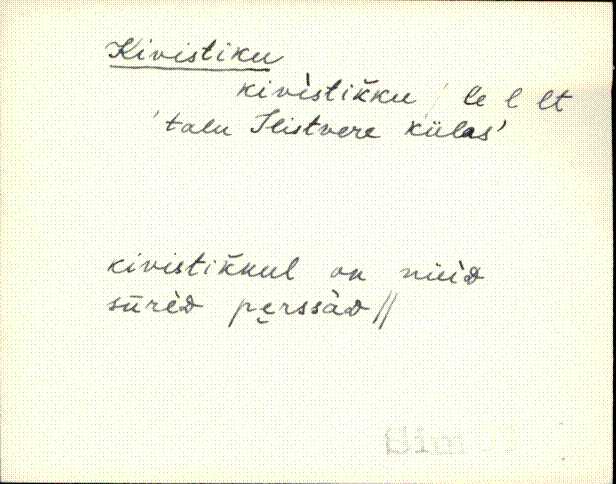 Kivistiku
kivìstik̆ku / le l lt
'talu Ilistvere külas'
kivistik̆kul on nüìd
sūrèd pęrssàd //